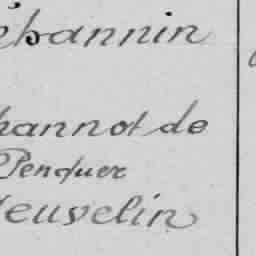 ébannin
hannot de
Penquer
euvelin